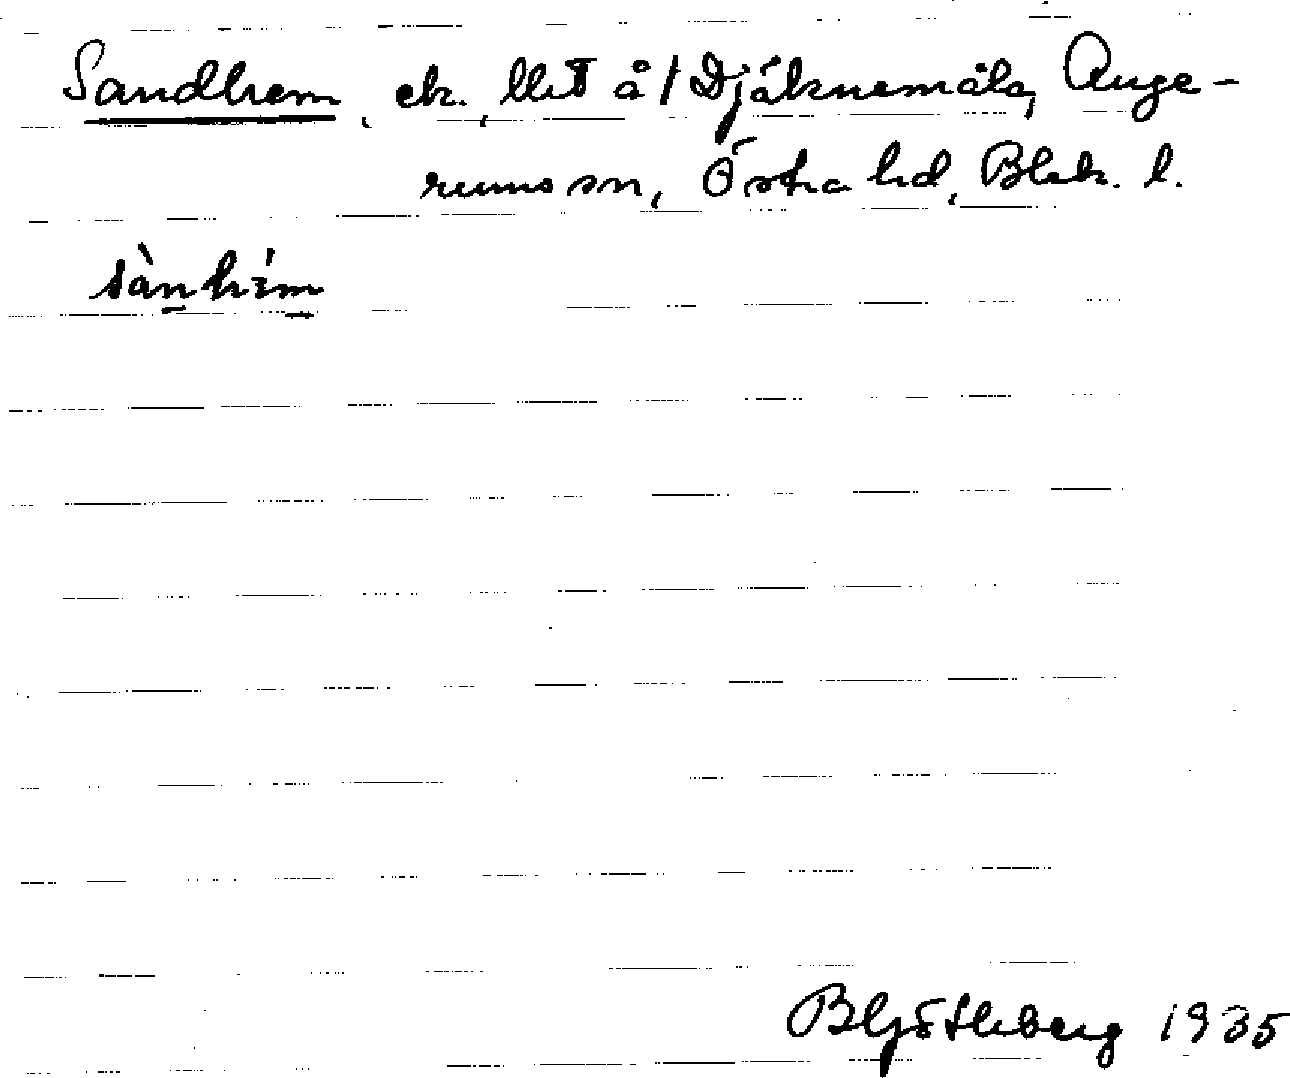 Sandhem, ek., llht å 1 Djäknemåla, Auge-
rums sn, Östra hd, Blek. l.
sànhém
Bl Götlleberg 1935